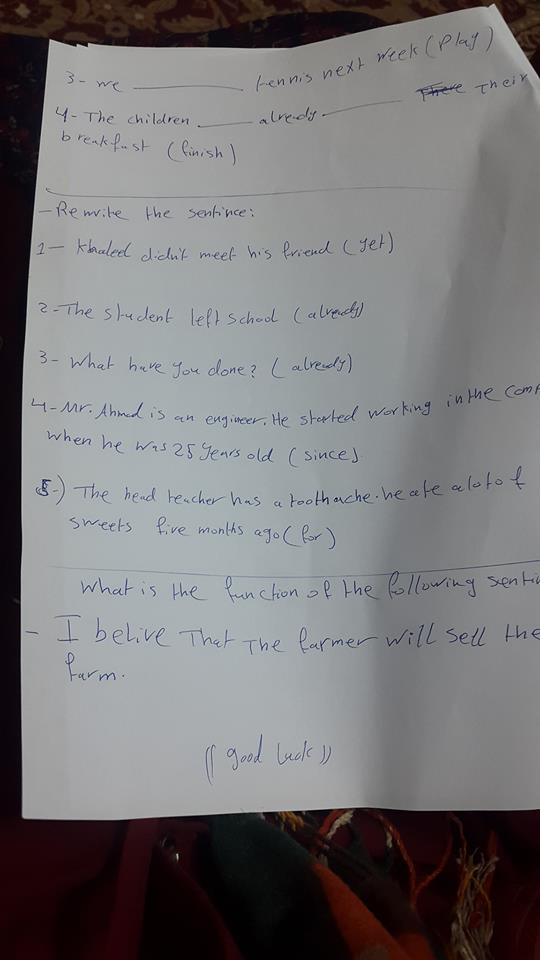 3- we ______ tennis next week (play)
4- The children ______ already ______ There Their
breakfast (finish)
- Rewrite the sentince:
1- Khaleed didn't meet his friend (yet)
2- The student left school (already)
3- What have you done? (already)
4- Mr. Ahmad is an engineer. He started working in the comp
when he was 25 years old (since)
5-) The head teacher has a toothache. he ate a lot of
sweets five months ago (for)
What is the function of the following senti
- I belive That The farmer will sell the
farm.
(( good luck ))